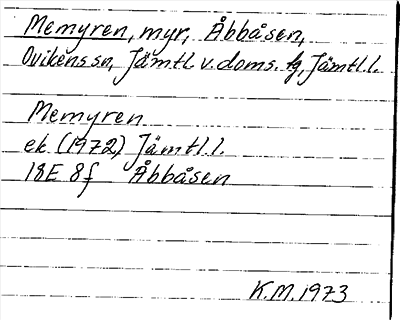 Memyren, myr, Åbbåsen,
Ovikens sn, Jämtl. v. doms. tg, Jämtl. l.
Memyren
ek. (1972) Jämtl. l.
18E 8f Åbbåsen
K.M. 1973